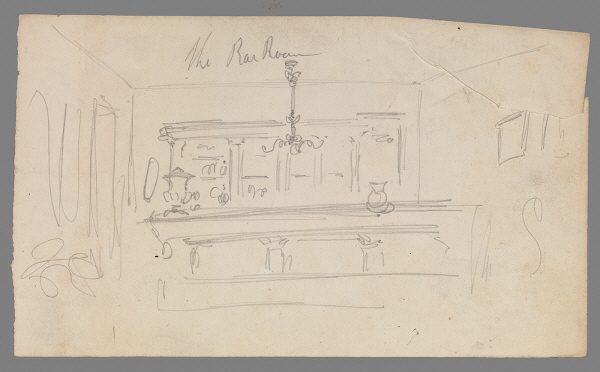 The Bar Room